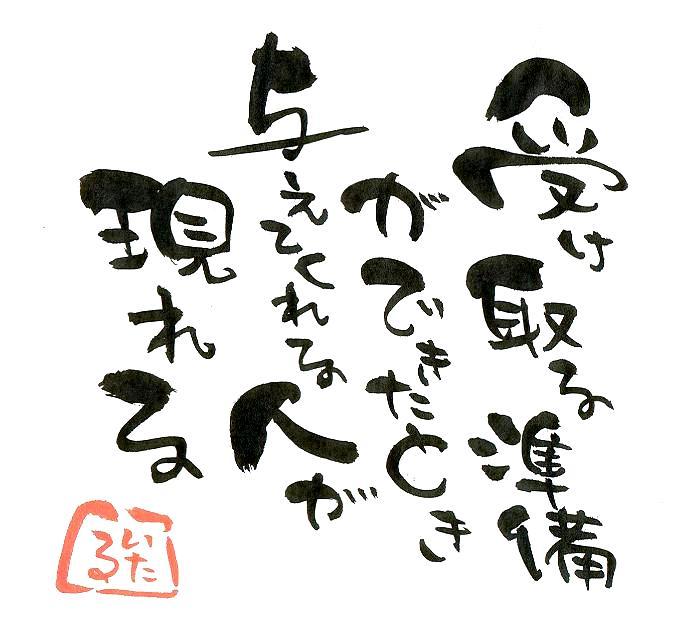 受け取る準備
ができたとき
与えてくれる人が
現れる
いたる